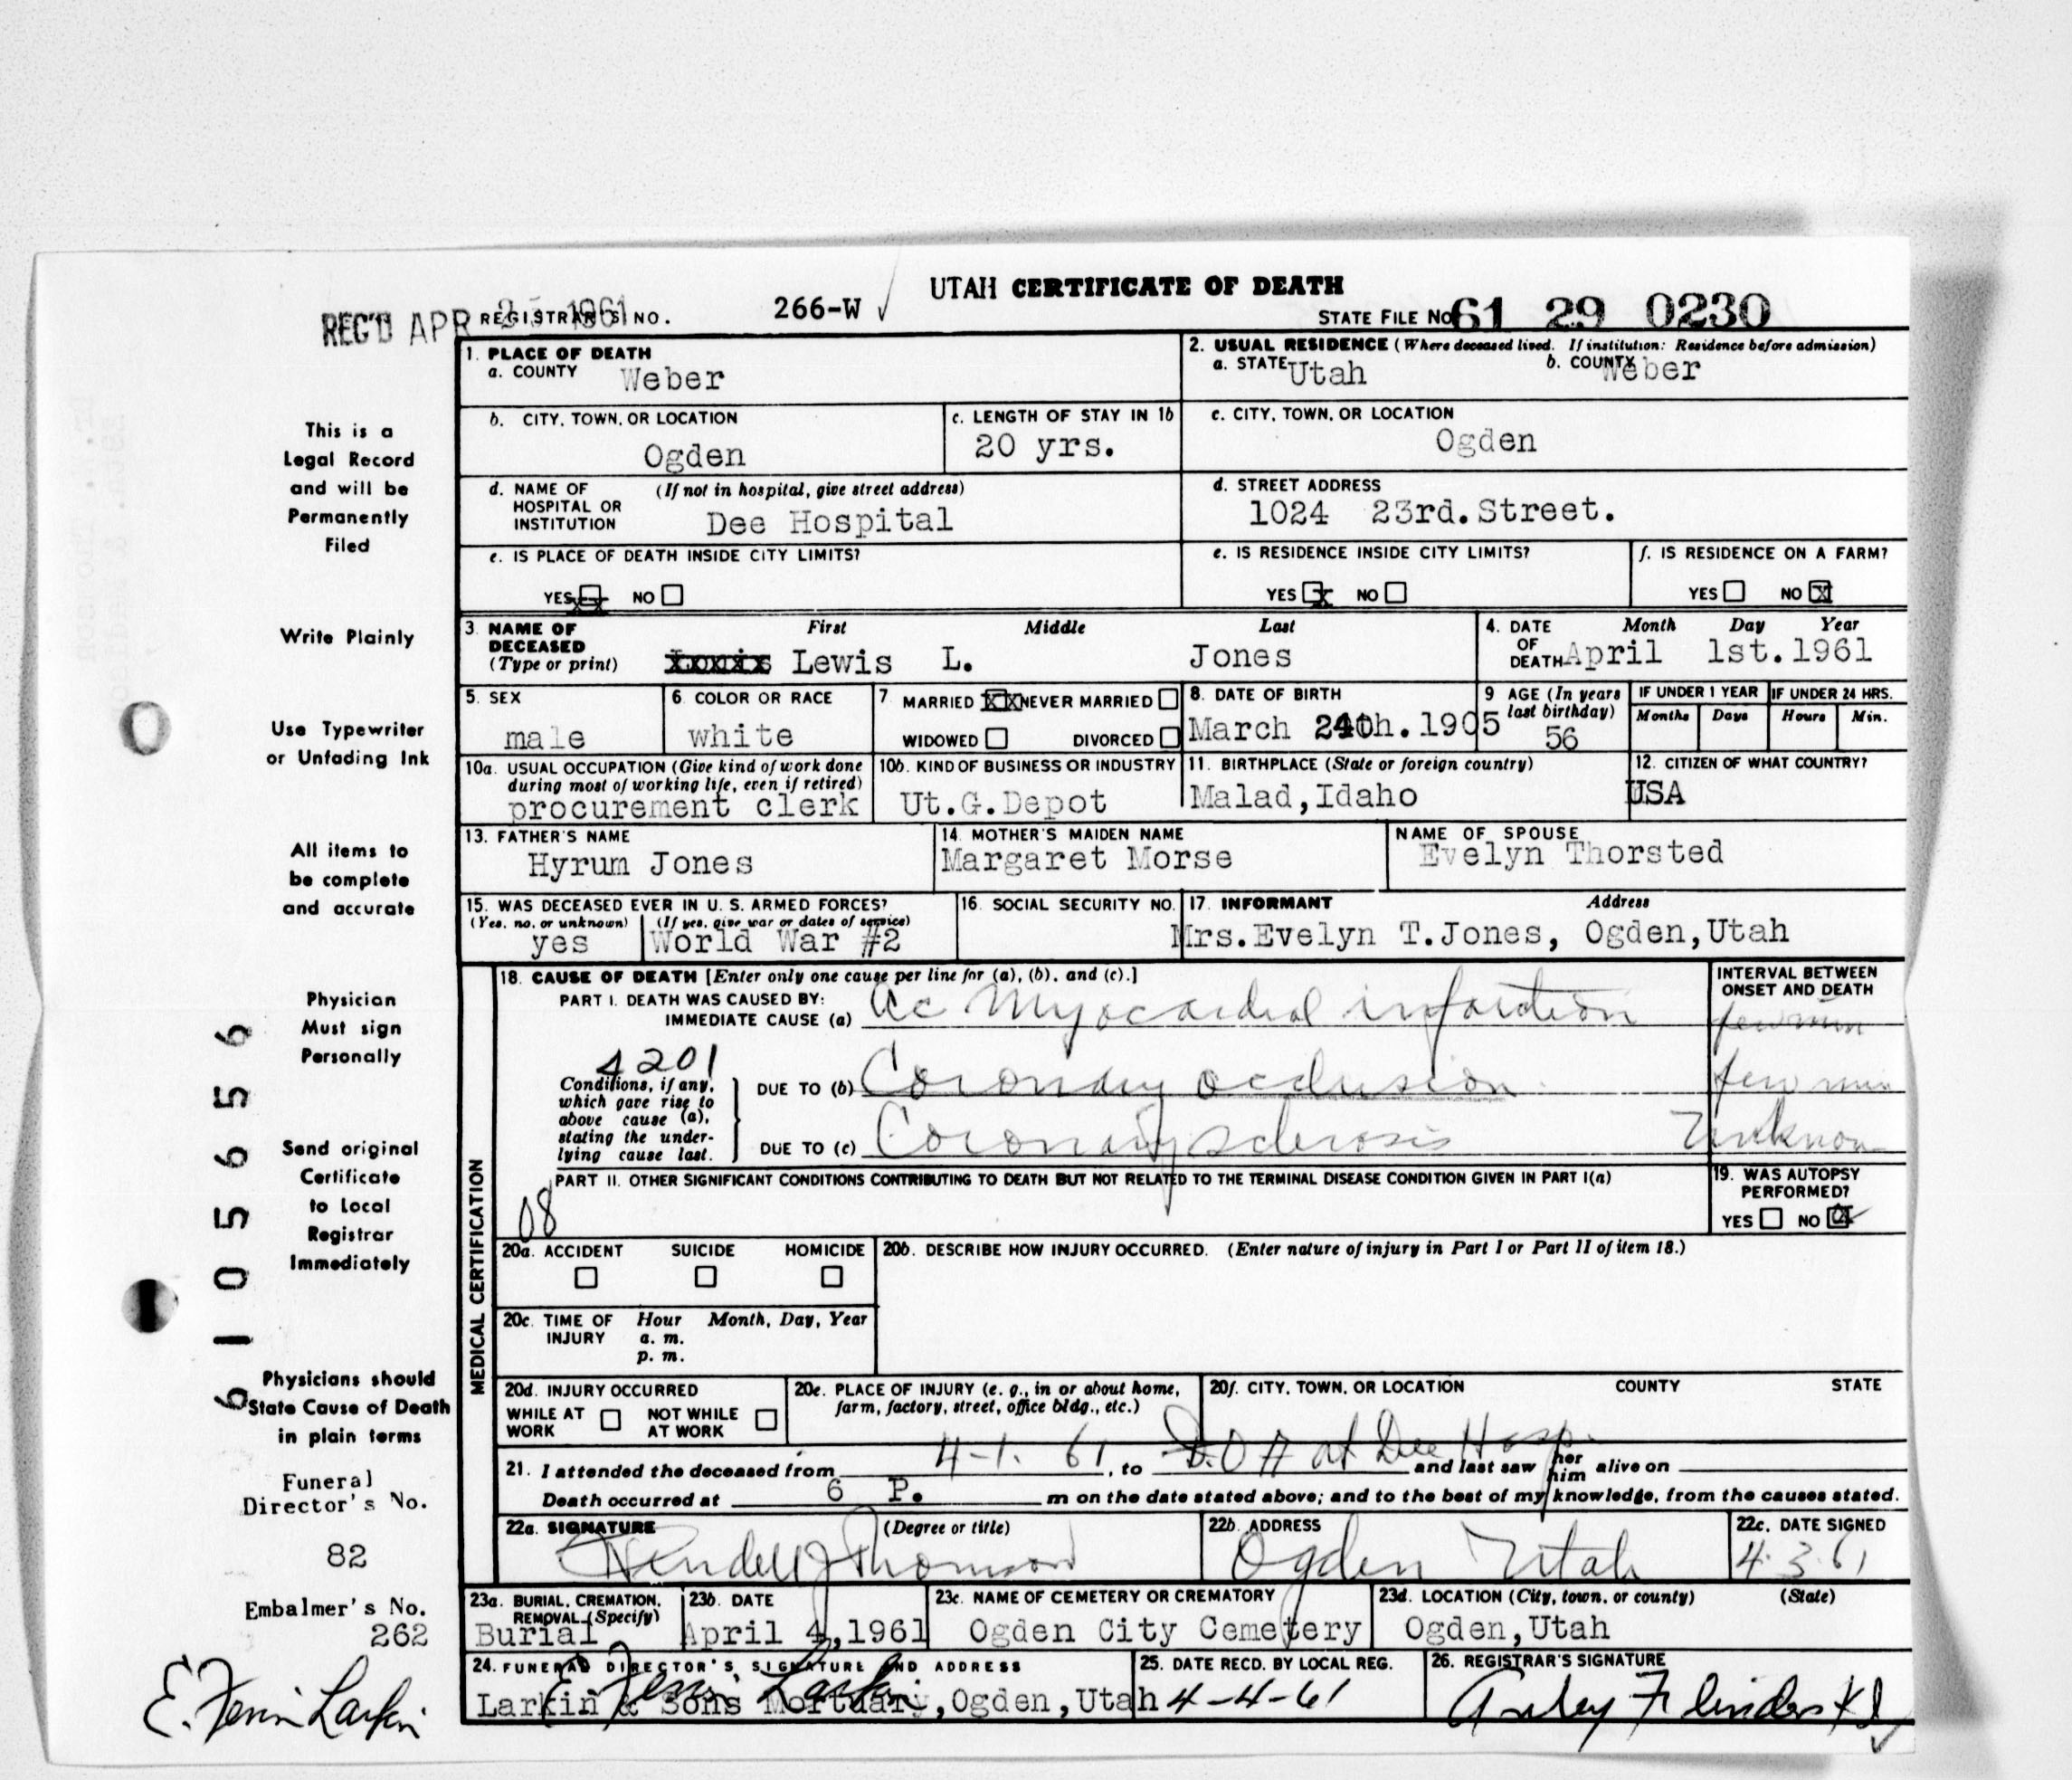 UTAH CERTIFICATE OF DEATH
REG'D APR 1961 REGISTRAR'S NO. 266-W STATE FILE No 61 29 0230
1. PLACE OF DEATH
a. COUNTY Weber
2. USUAL RESIDENCE (Where deceased lived. If institution: Residence before admission)
a. STATE Utah b. COUNTY Weber
b. CITY, TOWN, OR LOCATION Ogden
c. LENGTH OF STAY IN 1b 20 yrs.
c. CITY, TOWN, OR LOCATION Ogden
d. NAME OF HOSPITAL OR INSTITUTION (If not in hospital, give street address) Dee Hospital
d. STREET ADDRESS 1024 23rd. Street.
e. IS PLACE OF DEATH INSIDE CITY LIMITS?
YES XX NO
e. IS RESIDENCE INSIDE CITY LIMITS?
YES X NO
f. IS RESIDENCE ON A FARM?
YES NO X
3. NAME OF DECEASED (Type or print) First Middle Last
Lewis L. Jones
4. DATE OF DEATH Month Day Year
April 1st. 1961
5. SEX male
6. COLOR OR RACE white
7 MARRIED XX NEVER MARRIED
WIDOWED DIVORCED
8. DATE OF BIRTH March th. 1905
9 AGE (In years last birthday) 56
IF UNDER 1 YEAR Months Days
IF UNDER 24 HRS. Hours Min.
10a. USUAL OCCUPATION (Give kind of work done during most of working life, even if retired) procurement clerk
10b. KIND OF BUSINESS OR INDUSTRY Ut.G.Depot
11. BIRTHPLACE (State or foreign country) Malad, Idaho
12. CITIZEN OF WHAT COUNTRY? USA
13. FATHER'S NAME Hyrum Jones
14. MOTHER'S MAIDEN NAME Margaret Morse
NAME OF SPOUSE Evelyn Thorsted
15. WAS DECEASED EVER IN U. S. ARMED FORCES?
(Yes, no, or unknown) yes (If yes, give war or dates of service) World War #2
16. SOCIAL SECURITY NO.
17. INFORMANT Address
Mrs. Evelyn T. Jones, Ogden, Utah
MEDICAL CERTIFICATION
18. CAUSE OF DEATH [Enter only one cause per line for (a), (b), and (c).]
INTERVAL BETWEEN ONSET AND DEATH
PART I. DEATH WAS CAUSED BY:
IMMEDIATE CAUSE (a) Ac Myocardial infarction few min
4201
Conditions, if any, which gave rise to above cause (a), stating the underlying cause last.
DUE TO (b) Coronary occlusion few min
DUE TO (c) Coronary sclerosis Unknown
PART II. OTHER SIGNIFICANT CONDITIONS CONTRIBUTING TO DEATH BUT NOT RELATED TO THE TERMINAL DISEASE CONDITION GIVEN IN PART I(a)
08
19. WAS AUTOPSY PERFORMED?
YES NO
20a. ACCIDENT SUICIDE HOMICIDE
20b. DESCRIBE HOW INJURY OCCURRED. (Enter nature of injury in Part I or Part II of item 18.)
20c. TIME OF INJURY Hour a. m. p. m. Month, Day, Year
20d. INJURY OCCURRED
WHILE AT WORK NOT WHILE AT WORK
20e. PLACE OF INJURY (e. g., in or about home, farm, factory, street, office bldg., etc.)
20f. CITY, TOWN, OR LOCATION COUNTY STATE
21. I attended the deceased from 4-1. 61, to D.O.A at Dee Hosp. and last saw her him alive on
Death occurred at 6 P. m on the date stated above; and to the best of my knowledge, from the causes stated.
22a. SIGNATURE (Degree or title)
Wendell J Thomson
22b. ADDRESS Ogden Utah
22c. DATE SIGNED 4.3.61
23a. BURIAL, CREMATION, REMOVAL (Specify) Burial
23b. DATE April 4, 1961
23c. NAME OF CEMETERY OR CREMATORY Ogden City Cemetery
23d. LOCATION (City, town, or county) (State) Ogden, Utah
24. FUNERAL DIRECTOR'S SIGNATURE AND ADDRESS
Larkin & Sons Mortuary, Ogden, Utah
25. DATE RECD. BY LOCAL REG. 4-4-61
26. REGISTRAR'S SIGNATURE
This is a
Legal Record
and will be
Permanently
Filed
Write Plainly
Use Typewriter
or Unfading Ink
All items to
be complete
and accurate
Physician
Must sign
Personally
Send original
Certificate
to Local
Registrar
Immediately
Physicians should
State Cause of Death
in plain terms
61056556
Funeral
Director's No.
82
Embalmer's No.
262
E. Ferrin Larkin